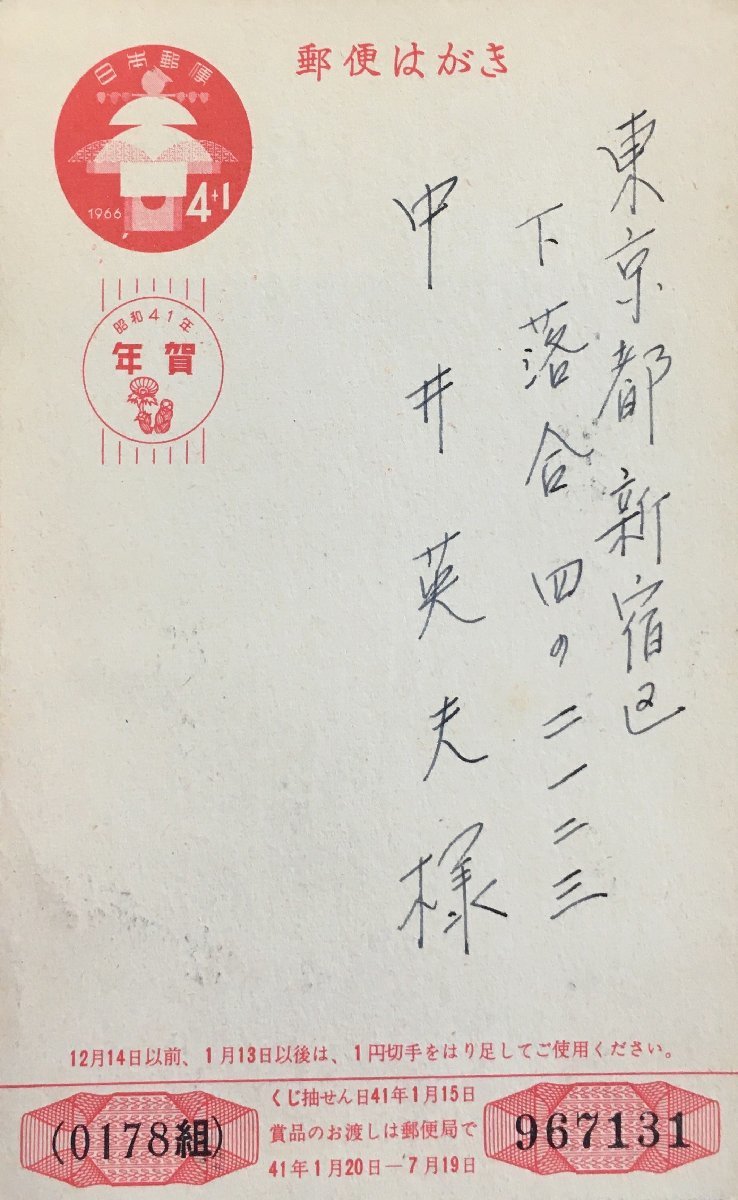 郵便はがき
日本郵便
1966
4+1
昭和41年
年賀
東京都新宿区
下落合四の二一二三
中井英夫様
12月14日以前、1月13日以後は、1円切手をはり足してご使用ください。
(0178組)
くじ抽せん日41年1月15日
賞品のお渡しは郵便局で
41年1月20日—7月19日
967131